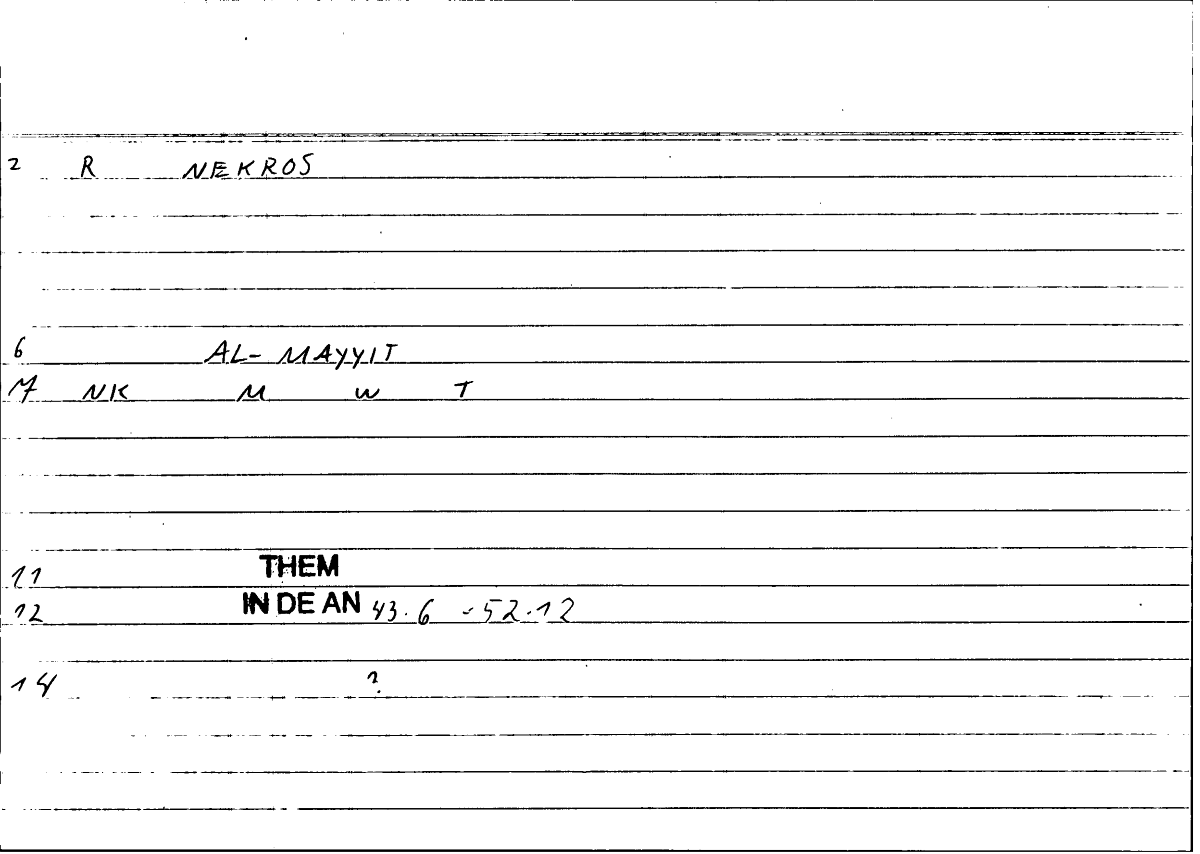 2 R NEKROS
6 AL- MAYYIT
7 NK M W T
11 THEM
12 IN DE AN 43.6 - 52.12
14 ?